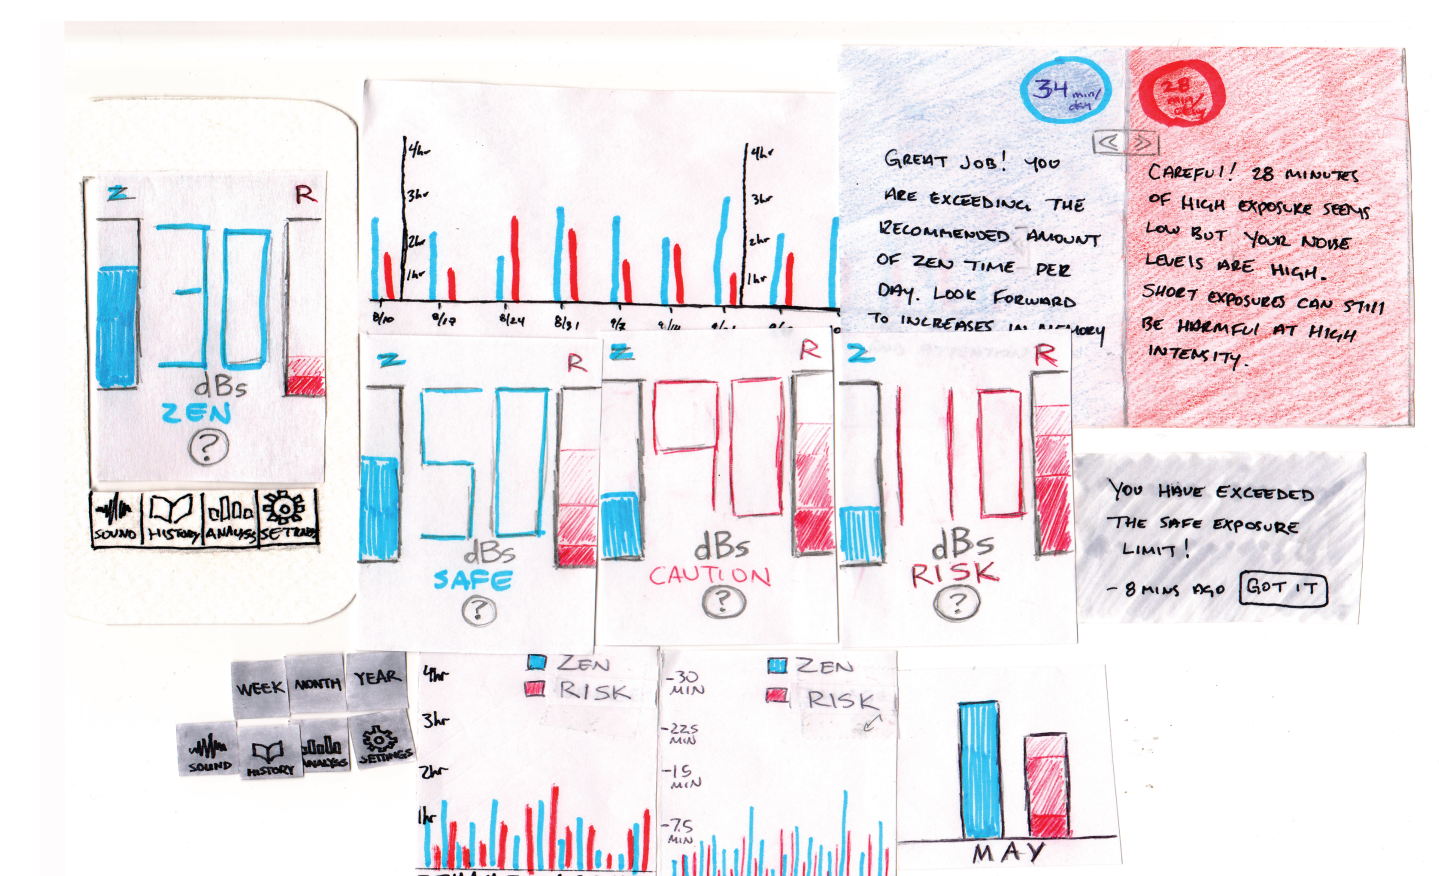 Z
R
30
dBs
ZEN
?
SOUND
HISTORY
ANALYSIS
SETTINGS
4hr
3hr
2hr
1hr
4hr
3hr
2hr
1hr
8/10
8/17
8/24
8/31
9/7
9/14
34 min/
day
GREAT JOB! YOU
ARE EXCEEDING THE
RECOMMENDED AMOUNT
OF ZEN TIME PER
DAY. LOOK FORWARD
TO INCREASES IN MEMORY
28
min/
day
<< >>
CAREFUL! 28 MINUTES
OF HIGH EXPOSURE SEEMS
LOW BUT YOUR NOISE
LEVELS ARE HIGH.
SHORT EXPOSURES CAN STILL
BE HARMFUL AT HIGH
INTENSITY.
Z
R
50
dBs
SAFE
?
Z
R
90
dBs
CAUTION
?
Z
R
110
dBs
RISK
?
YOU HAVE EXCEEDED
THE SAFE EXPOSURE
LIMIT!
- 8 MINS AGO GOT IT
WEEK
MONTH
YEAR
SOUND
HISTORY
ANALYSIS
SETTINGS
4hr
3hr
2hr
1hr
ZEN
RISK
-30
MIN
-22.5
MIN
-15
MIN
-7.5
MIN
ZEN
RISK
MAY